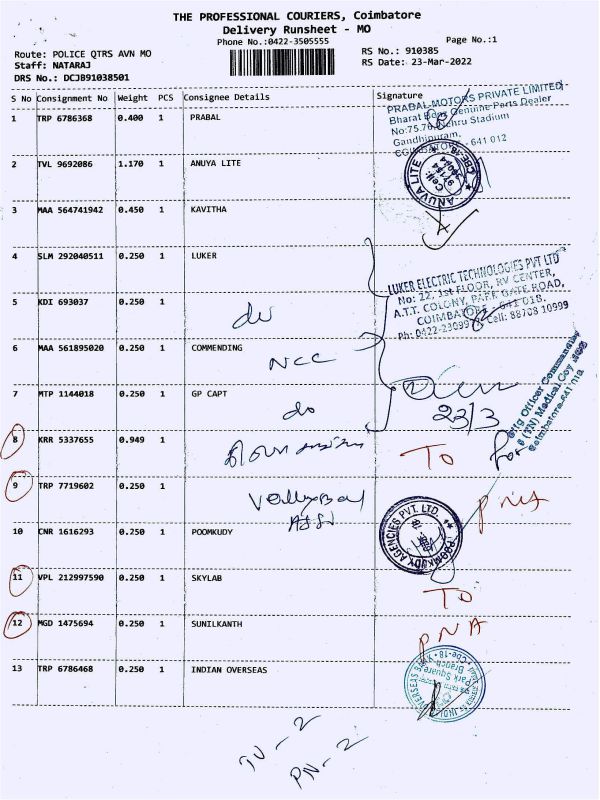 THE PROFESSIONAL COURIERS, Coimbatore
Delivery Runsheet - MO
Phone No.:0422-3505555
Page No.:1
Route: POLICE QTRS AVN MO
RS No.: 910385
Staff: NATARAJ
RS Date: 23-Mar-2022
DRS No.: DCJB91038501
S No Consignment No Weight PCS Consignee Details Signature
1 TRP 6786368 0.400 1 PRABAL
PRABAL MOTORS PRIVATE LIMITED
Bharat Benz Genuine Parts Dealer
Nehru Stadium
Gandhipuram,
COIMBATORE - 641 012
2 TVL 9692086 1.170 1 ANUYA LITE
ANUYA LITE
3 MAA 564741942 0.450 1 KAVITHA
4 SLM 292040511 0.250 1 LUKER
LUKER ELECTRIC TECHNOLOGIES PVT LTD
No: 22, 1st FLOOR, RV CENTER,
A.T.T. COLONY, PARK GATE ROAD,
COIMBATORE - 641 018.
Ph: 0422-23099 Cell: 88708 10999
5 KDI 693037 0.250 1
do
6 MAA 561895020 0.250 1 COMMENDING
NCC
7 MTP 1144018 0.250 1 GP CAPT
do
23/3
Offg Officer Commanding
(TN) Medical Coy NCC
Coimbatore-641 018
for
8 KRR 5337655 0.949 1
TO
9 TRP 7719602 0.250 1
Volleyball
ASSN
PNA
10 CNR 1616293 0.250 1 POOMKUDY
POOMKUDY AGENCIES PVT. LTD.
11 VPL 212997590 0.250 1 SKYLAB
TO
12 MGD 1475694 0.250 1 SUNILKANTH
PNA
13 TRP 6786468 0.250 1 INDIAN OVERSEAS
INDIAN OVERSEAS BANK
Park Square
Branch
Cbe-18
PN-2